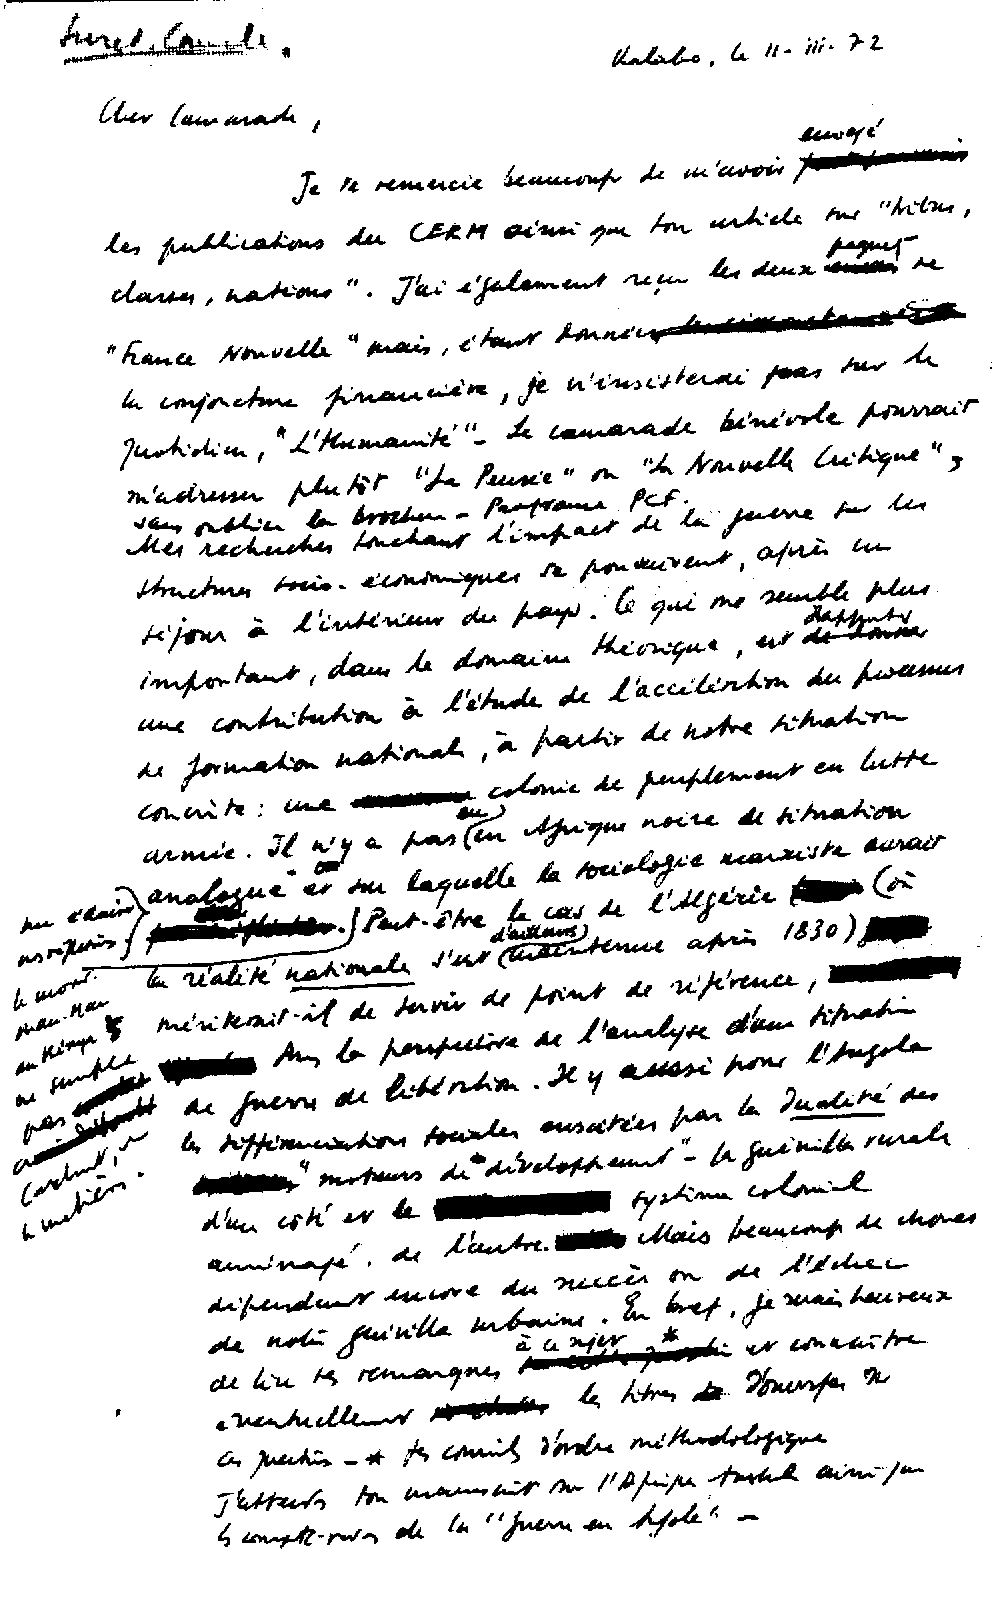 Suret-Canale.
Kalabo, le 11-III-72
Cher Camarade,
envoyé
Je te remercie beaucoup de m'avoir
les publications du CERM ainsi que ton article sur "tribus,
paquets
classes, nations". J'ai également reçu les deux de
"France Nouvelle" mais, étant donnée
la conjoncture financière, je n'insisterai pas sur le
quotidien, "L'Humanité" - Le camarade bénévole pourrait
m'adresser plutôt "La Pensée" ou "La Nouvelle Critique",
sans oublier la brochure - Programme PCF.
Mes recherches touchant l'impact de la guerre sur les
structures socio-économiques se poursuivent, après un
séjour à l'intérieur du pays. Ce qui me semble plus
d'apporter
important, dans le domaine théorique, est de donner
une contribution à l'étude de l'accélération du processus
de formation nationale, à partir de notre situation
concrète: une colonie de peuplement en lutte
armée. Il n'y a pas eu en Afrique noire de situation
analogue et sur laquelle la sociologie marxiste aurait
Peut-être le cas de l'Algérie (où
d'ailleurs
la réalité nationale s'est maintenue après 1830)
mériterait-il de servir de point de référence,
dans la perspective de l'analyse d'une situation
de guerre de libération. Il y aussi pour l'Angola
les différenciations sociales suscitées par la dualité des
"moteurs de développement" - la guérilla rurale
d'un côté et le système colonial
aménagé, de l'autre. Mais beaucoup de choses
dépendent encore du succès ou de l'échec
de notre guérilla urbaine. En bref, je serais heureux
à ce sujet *
de lire tes remarques et connaître
éventuellement les titres d'ouvrages
- * tes conseils d'ordre méthodologique
J'attends ton manuscrit sur l'Afrique ainsi que
de la "guerre en" -
le mouv.
Mau-Mau
au Kenya
ne semble
pas